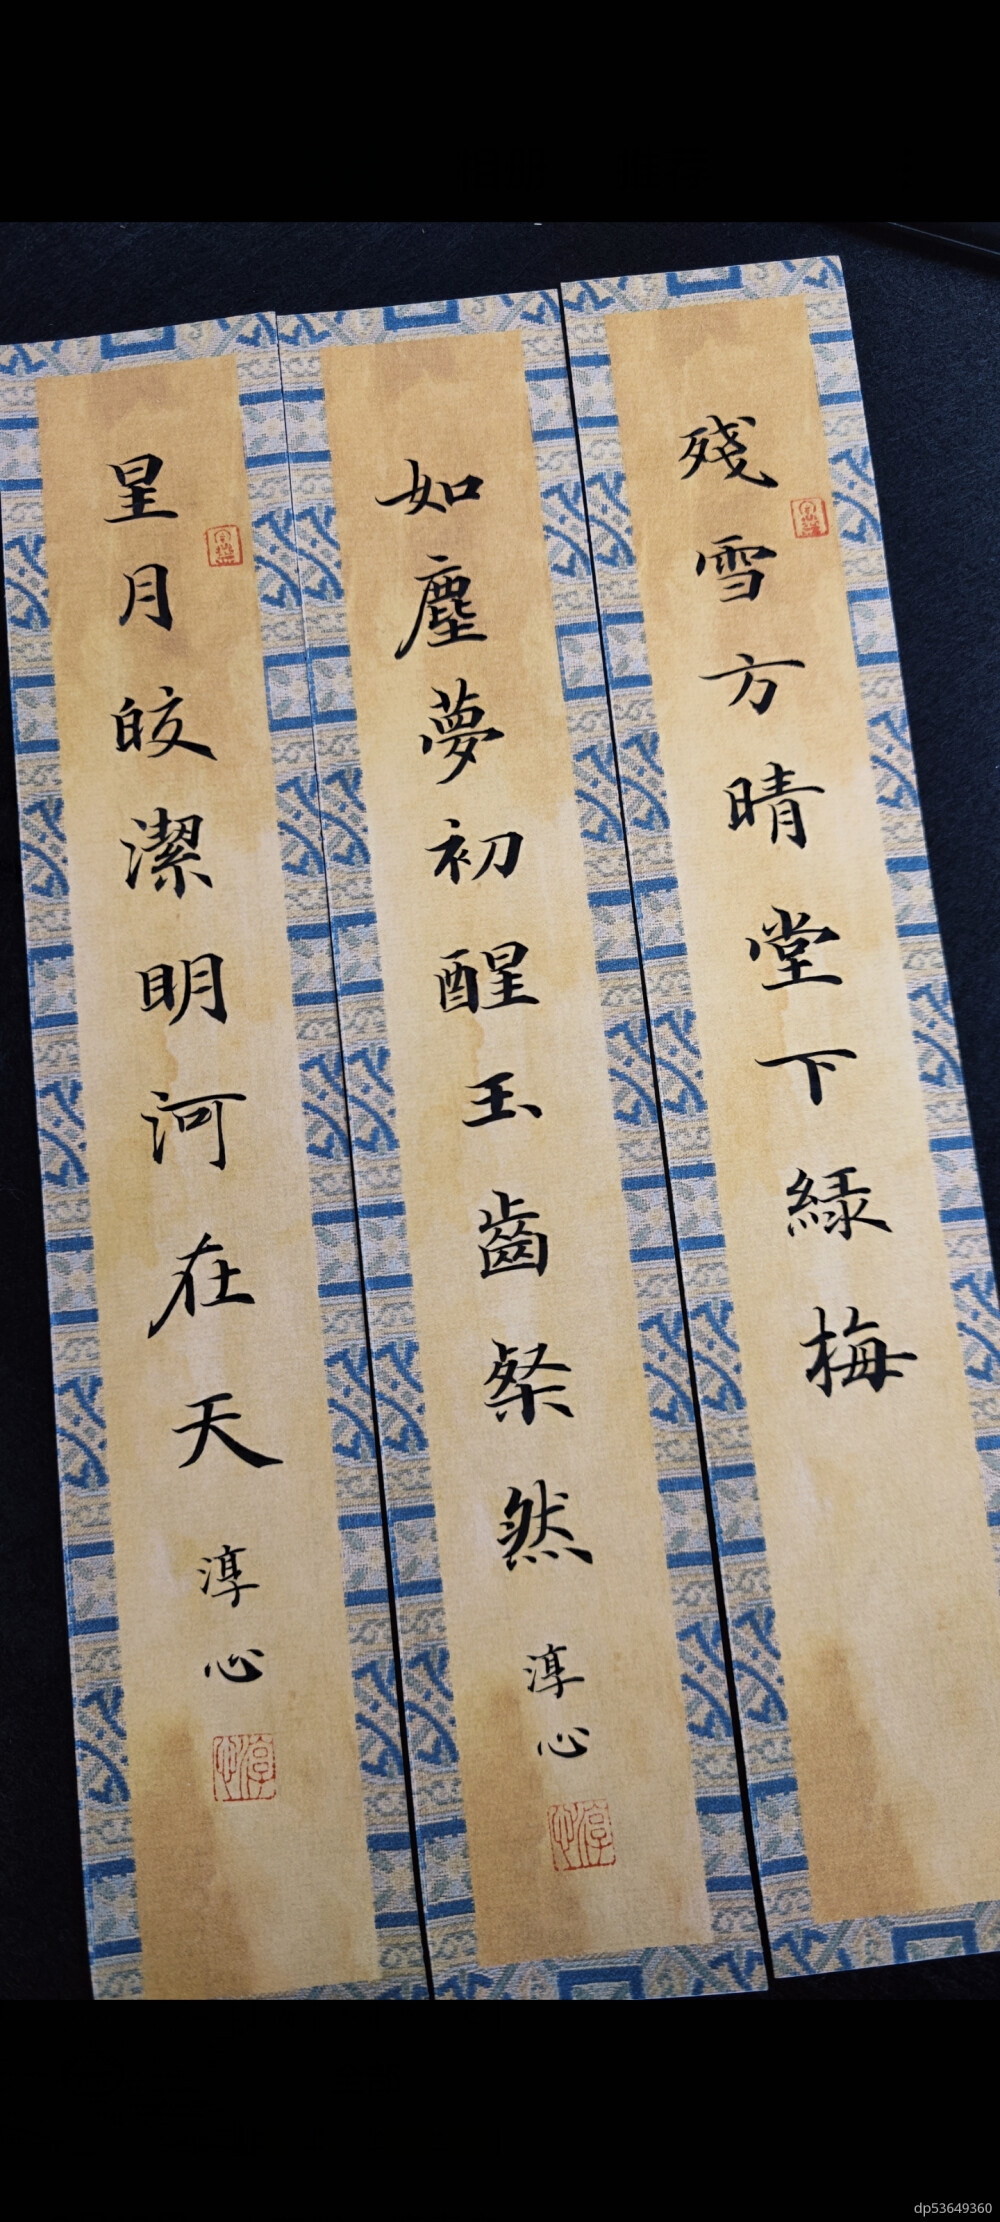 殘雪方晴堂下緑梅
如塵夢初醒玉齒粲然
淳心
淳心
星月皎潔明河在天
淳心
淳心
dp53649360